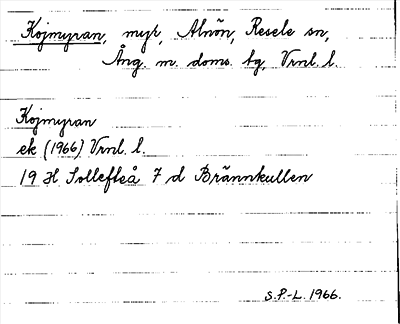 Kojmyran, myr, Alnön, Resele sn,
Ång. m. doms. tg, Vrnl. l.
Kojmyran
ek (1966) Vrnl. l.
19 H Sollefteå 7 d Brännkullen
S.P.-L. 1966.